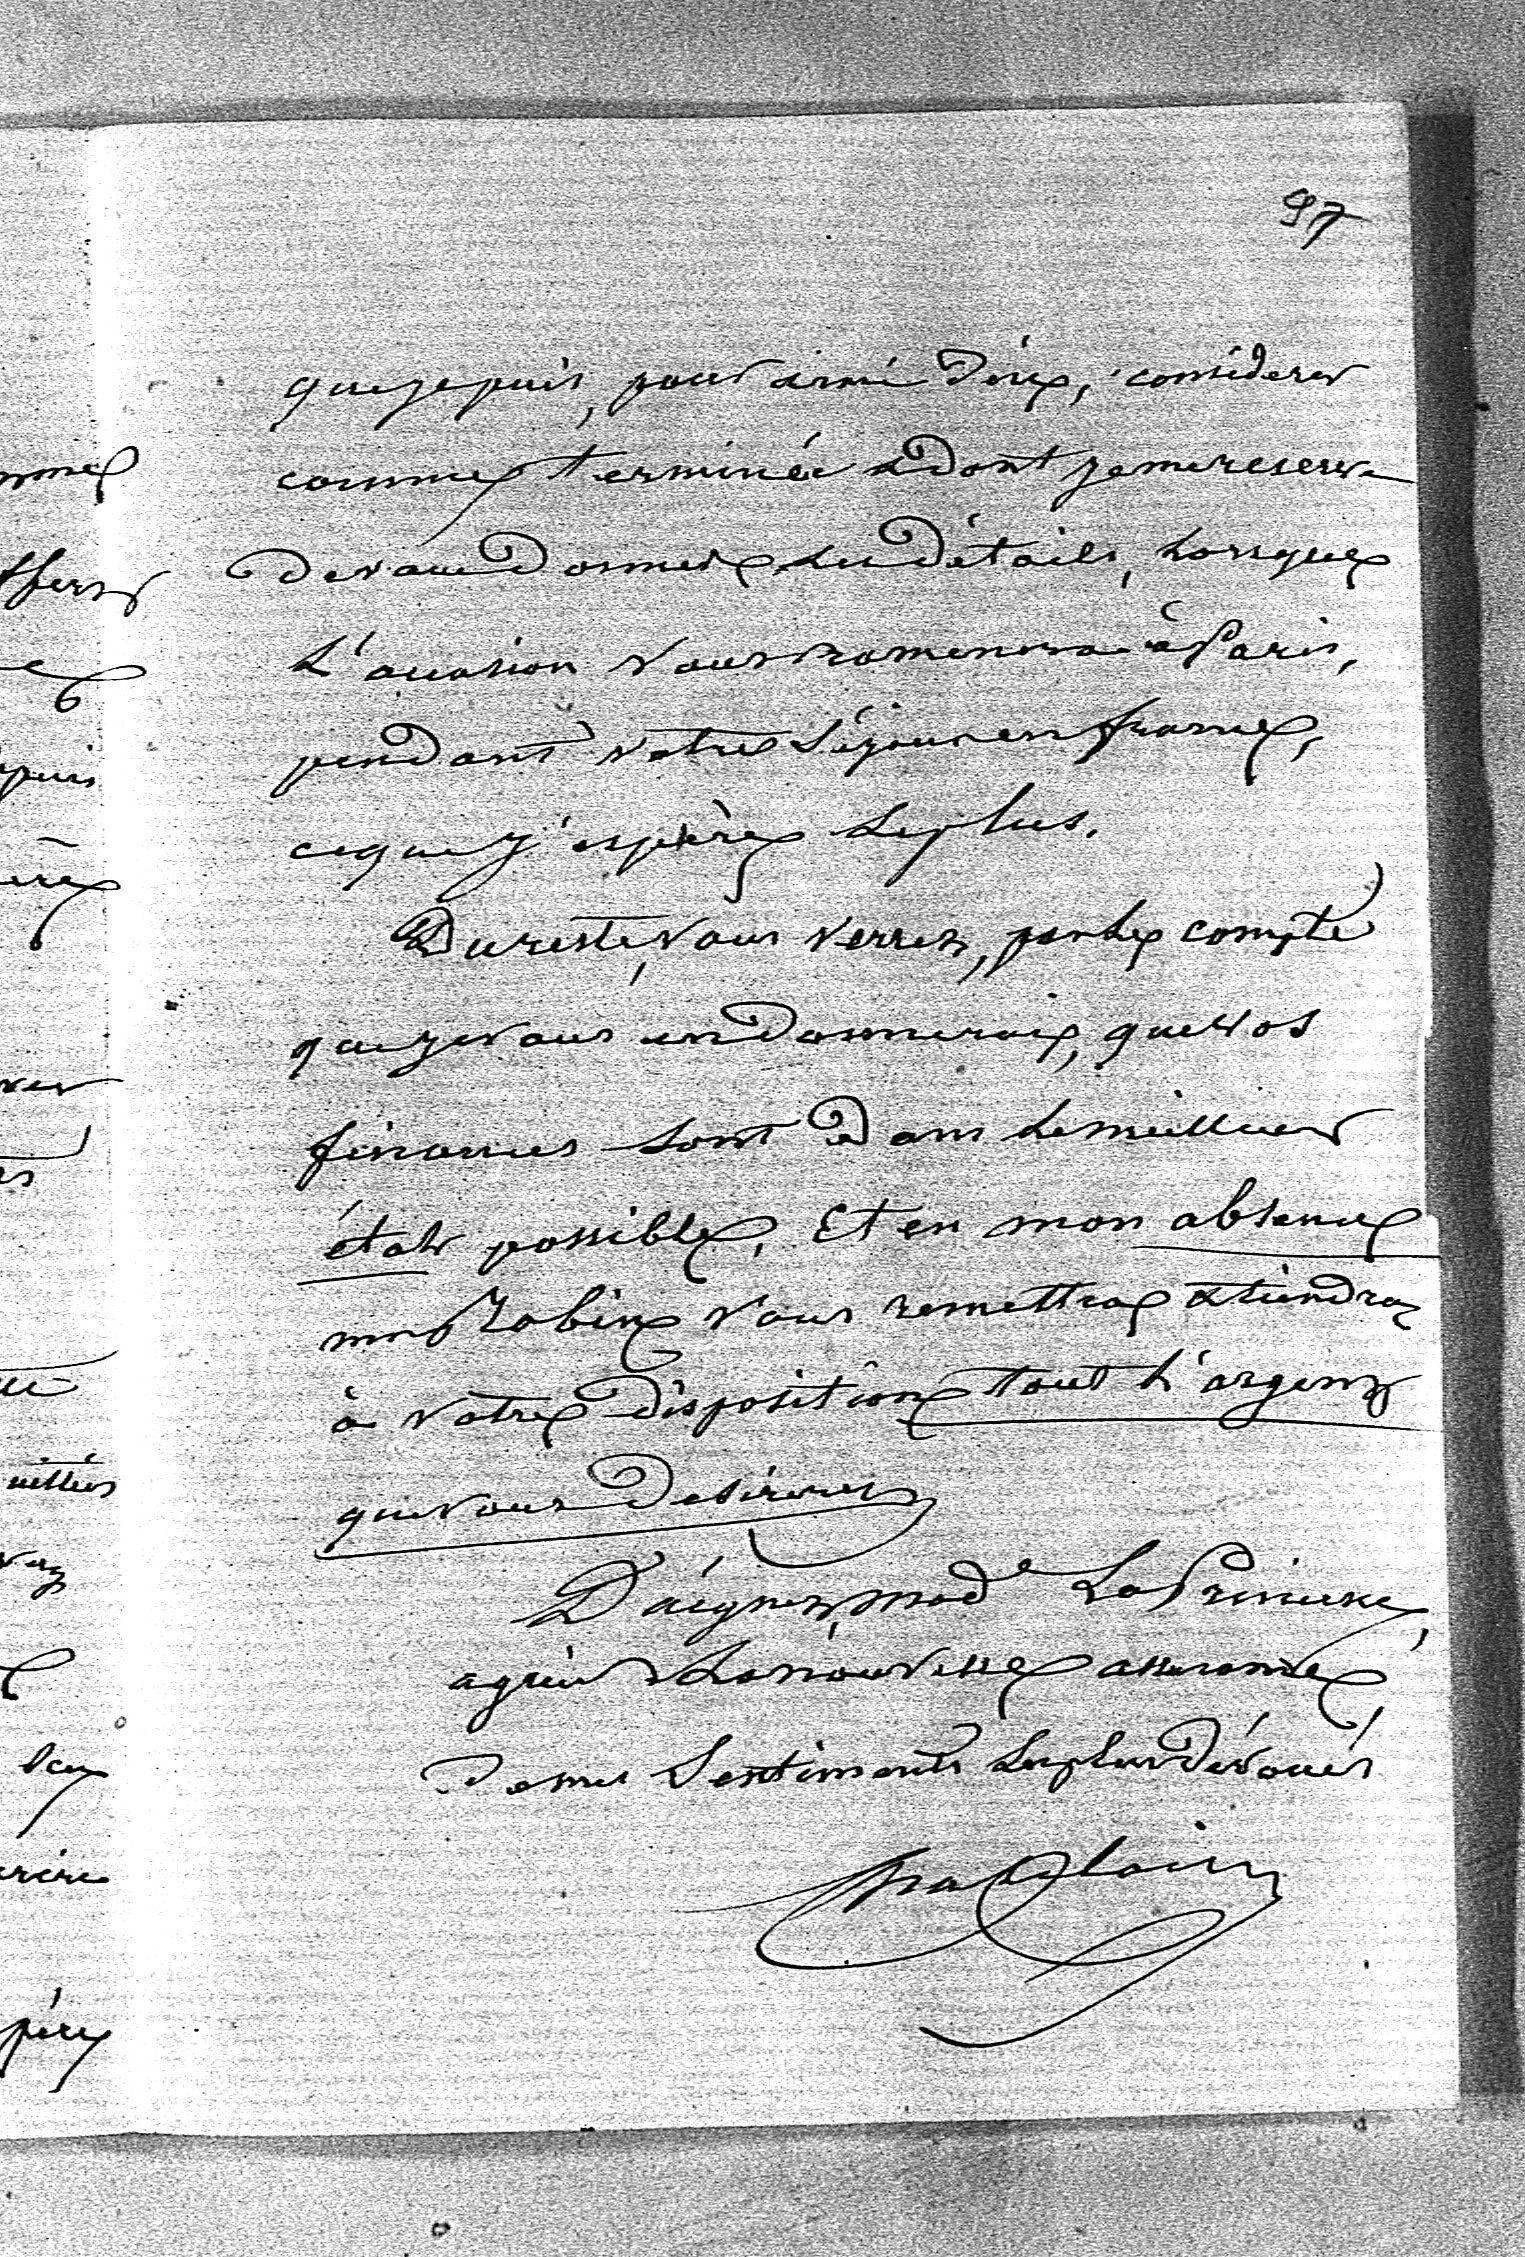 97
que je puis, pour ainsi dire, considerer
comme terminée et dont je me reserve
de vous donner les détails, lorsque
l'occasion vous ramenera à Paris,
pendant votre séjour en france,
ce que j'espère le plus.
Du reste, vous verrez, par le compte
que je vous en donnerai, que vos
finances sont dans le meilleur
état possible. Et en mon absence
mr Robin vous remettra et tiendra
à votre disposition tout l'argent
que vous desirerez
Daignez, made La Princesse,
agréer la nouvelle assurance,
de mes sentiments les plus dévoués